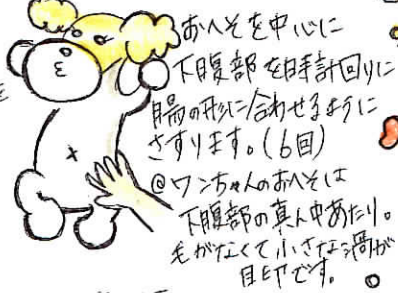 おへそを中心に
下腹部を時計回りに
腸の形に合わせるように
さすります。(6回)
@ワンちゃんのおへそは
下腹部の真ん中あたり。
毛がなくて小さな渦が
目印です。